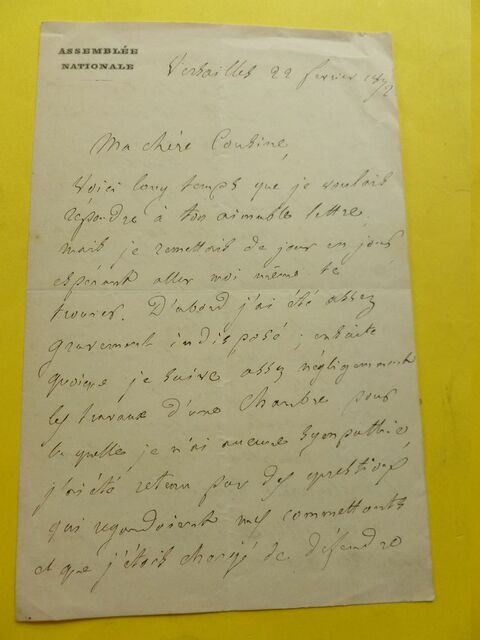 ASSEMBLÉE
NATIONALE
Versailles 22 février 1872
Ma chère Cousine,
Voici long temps que je voulais
répondre à ton aimable lettre,
mais je remettais de jour en jour
espérant aller moi même te
trouver. D'abord j'ai été assez
gravement indisposé ; ensuite
quoique je suive assez négligemment
les travaux d'une Chambre pour
la quelle je n'ai aucune sympathie
j'ai été retenu par des questions
qui regardoient mes commettants
et que j'étois chargé de défendre